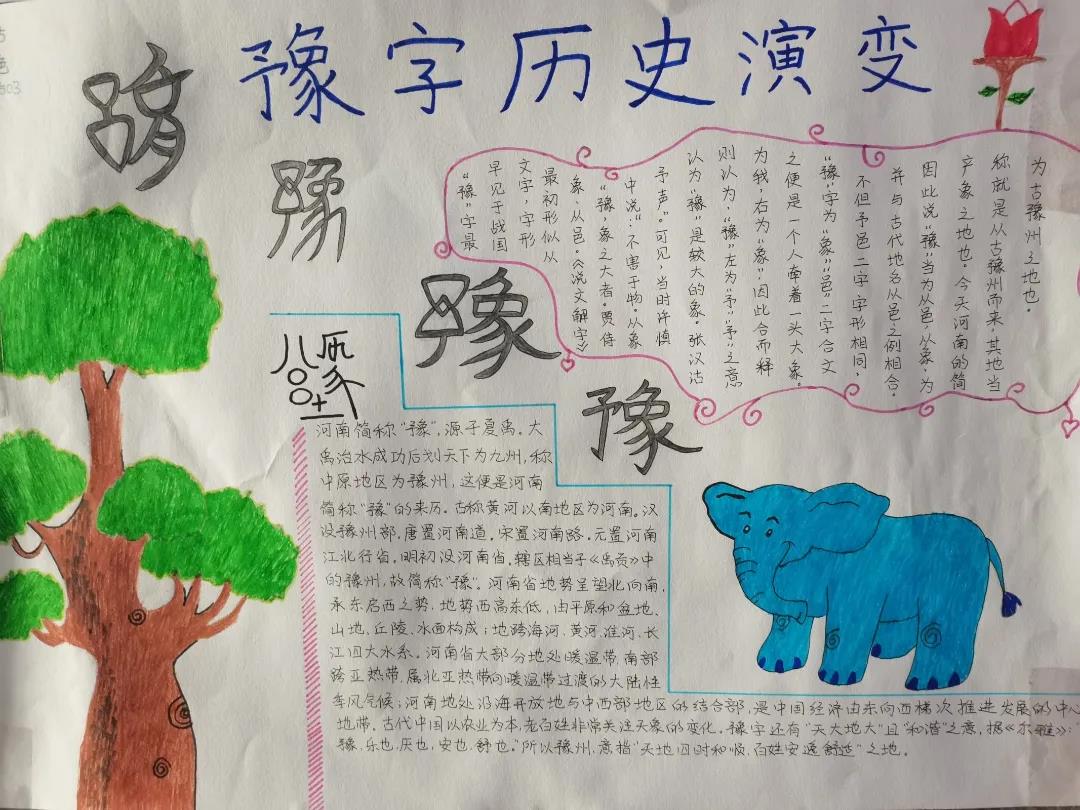 豫字历史演变
豫
豫
豫
豫
"豫"字最
早见于战国
文字，字形
最初形似从
象、从邑。《说文解字》
"豫，象之大者。贾侍
中说：不害于物。从象
予声。"可见，当时许慎
认为"豫"是较大的象。张汉洁
则认为，"豫"左为"予"，"予"之意
为我，右为"象"，因此合而释
之便是一个人牵着一头大象。
"豫"字为"象""邑"二字合文
不但予邑二字字形相同，
并与古代地名从邑之例相合。
因此说"豫"当为从邑，从象，为
产象之地也。今天河南的简
称就是从古豫州而来，其地当
为古豫州之地也。
河南简称"豫"，源于夏禹。大
禹治水成功后划天下为九州，称
中原地区为豫州，这便是河南
简称"豫"的来历。古称黄河以南地区为河南。汉
设豫州部，唐置河南道。宋置河南路，元置河南
江北行省。明初设河南省。辖区相当于《禹贡》中
的豫州，故简称"豫"。河南省地势呈望北向南，
承东启西之势，地势西高东低，由平原和盆地、
山地、丘陵、水面构成；地跨海河、黄河、淮河、长
江四大水系。河南省大部分地处暖温带，南部
跨亚热带，属北亚热带向暖温带过渡的大陆性
季风气候；河南地处沿海开放地与中西部地区的结合部，是中国经济由东向西梯次推进发展的中心
地带。古代中国以农业为本，老百姓非常关注天象的变化。豫字还有"天大地大"且"和谐"之意，据《尔雅》：
豫，乐也，厌也，安也，舒也。"所以豫州，意指"天地四时和顺，百姓安逸舒适"之地。